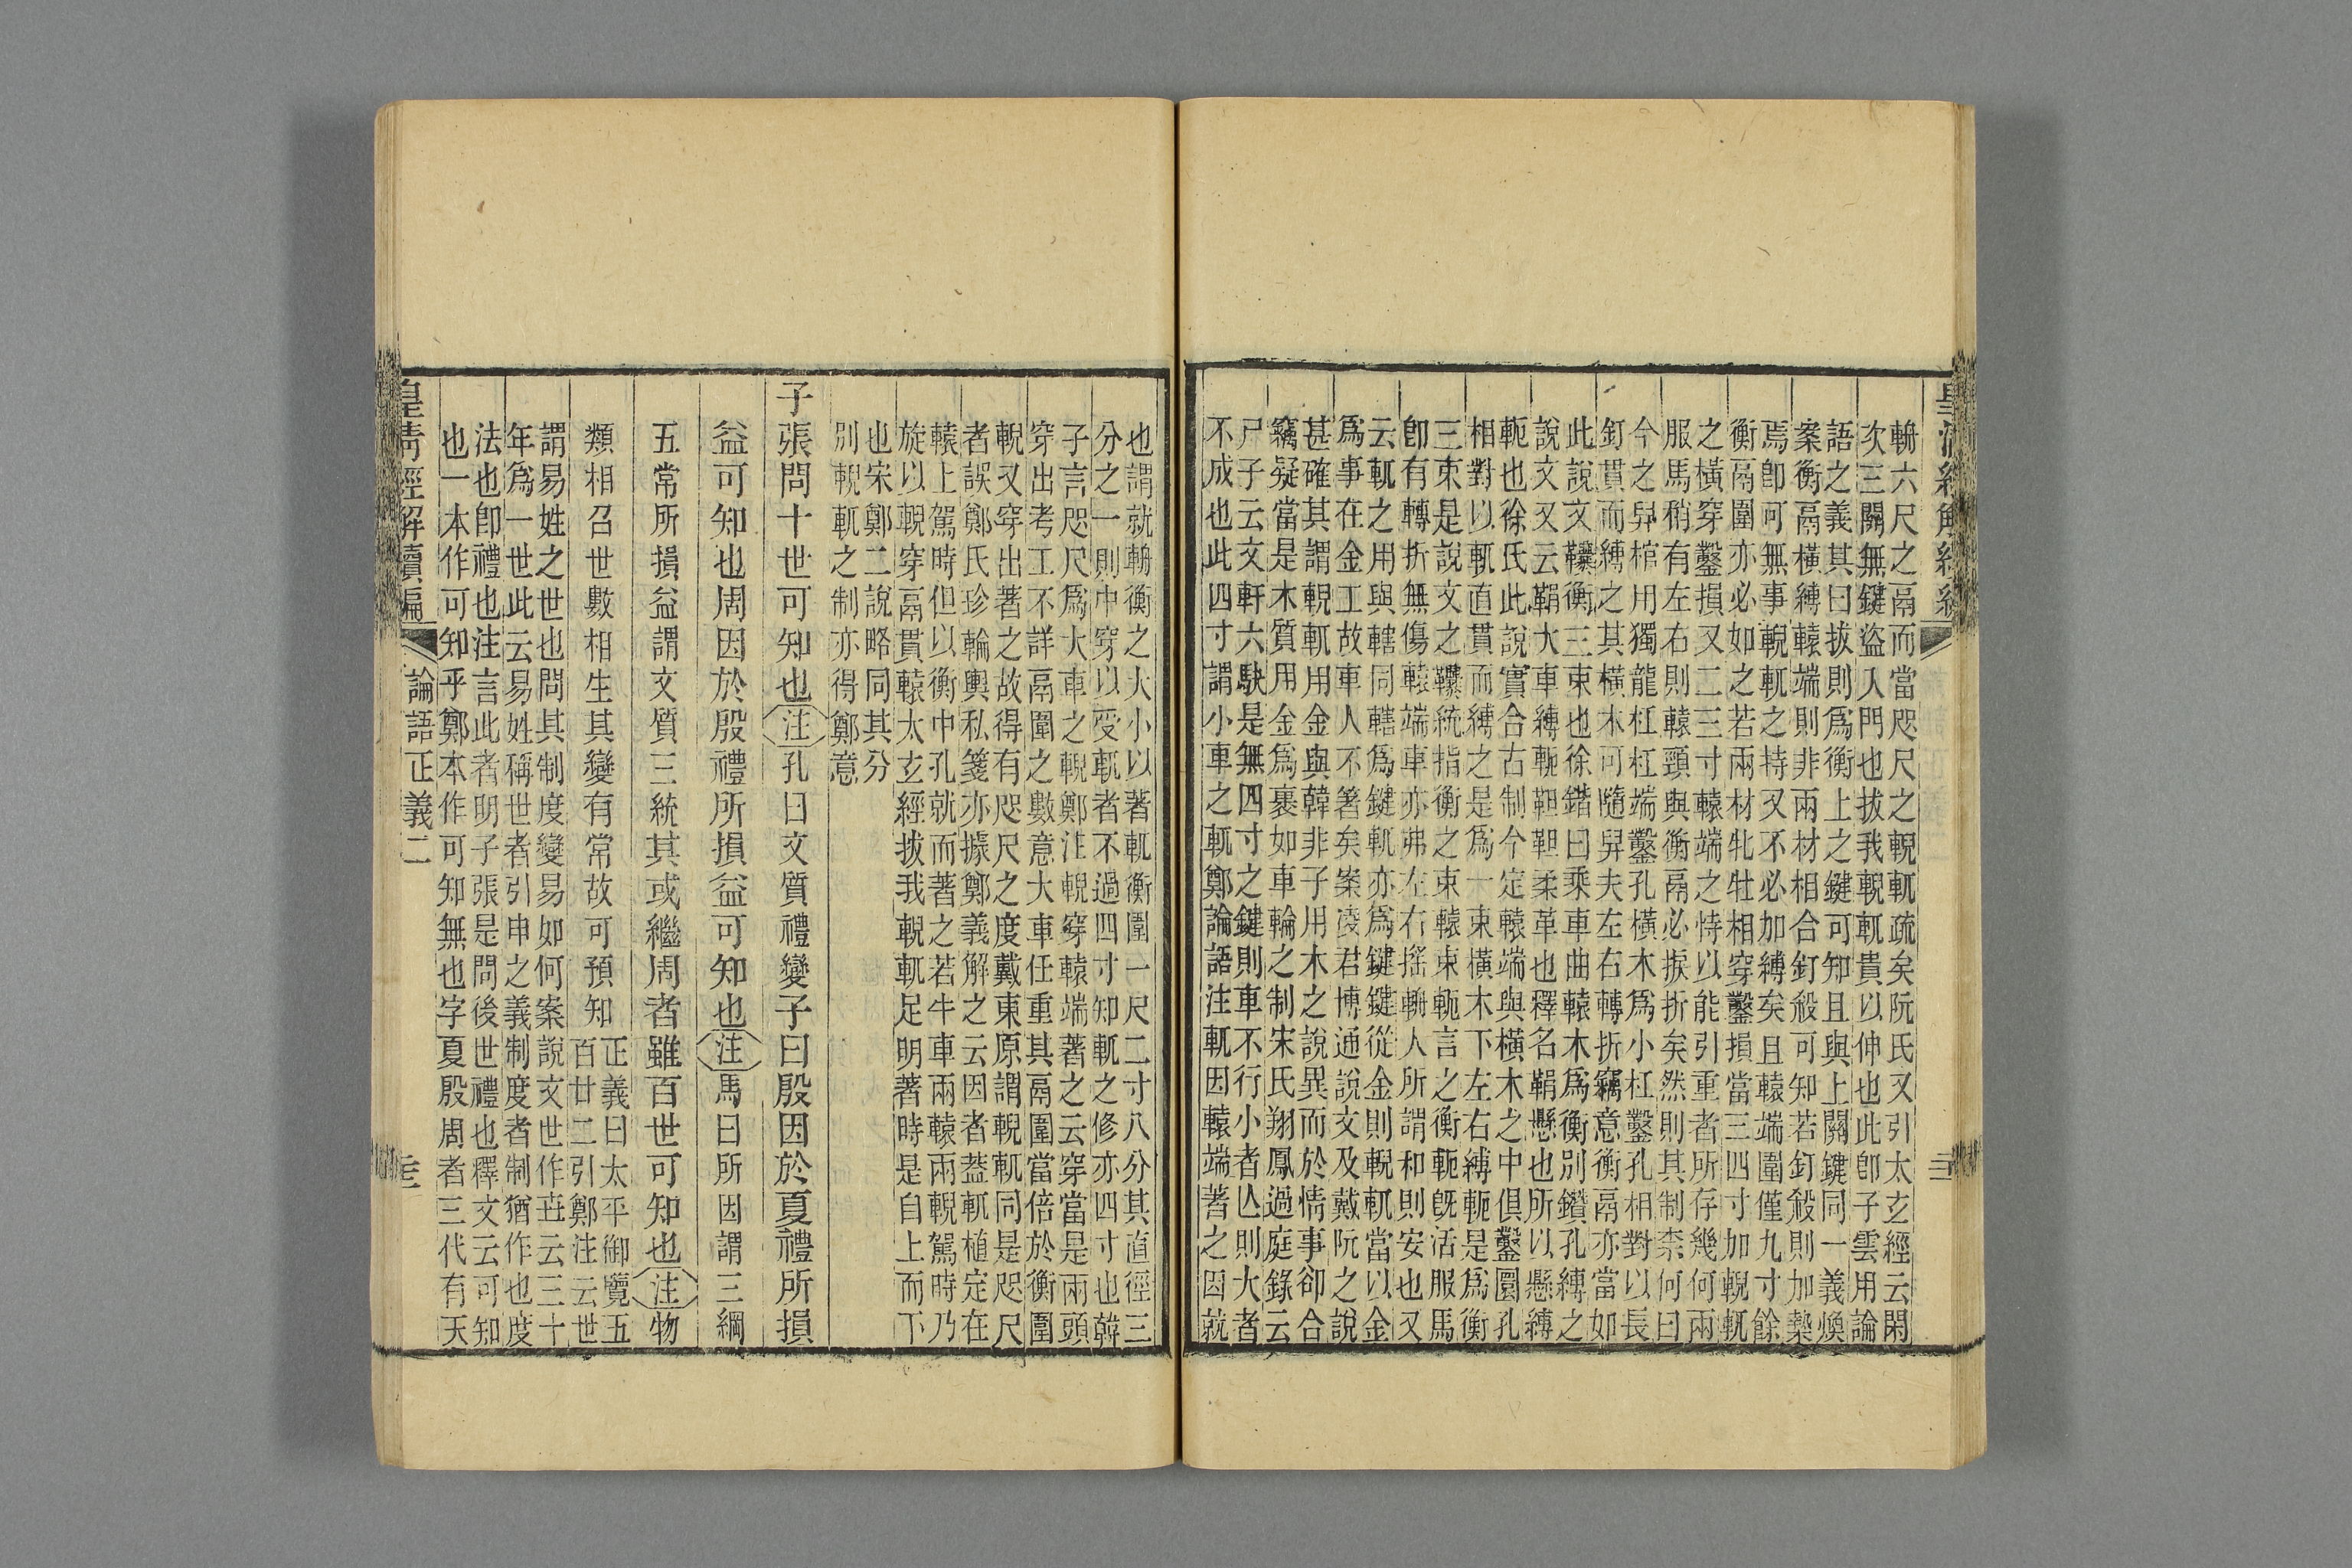 輈六尺之鬲而當咫尺之輗軏疏矣阮氏又引太玄經云閑
次三關無鍵盜入門也拔我輗軏貴以伸也此卽子雲用論
語之義其曰拔則爲衡上之鍵可知且與上關鍵同一義煥
案衡鬲橫縛轅端則非兩材相合釘殺可知若釘殺則加槷
焉卽可無事輗軏之持又不必加縛矣且轅端圍僅九寸餘
衡鬲圍亦必如之若兩材牝牡相穿鑿損當三四寸加輗軏
之橫穿鑿損又二三寸轅端之恃以能引重者所存幾何兩
服馬稍有左右則轅頸與衡鬲必捩折矣然則其制柰何曰
今之舁棺用獨龍杠杠端鑿孔橫木爲小杠鑿孔相對以長
釘貫而縛之其橫木可隨舁夫左右轉折竊意衡鬲亦當如
此說文䡺衡三束也徐鍇曰乘車曲轅木爲衡別鑽孔縛之
說文又云鞙大車縛軶靼靼柔革也釋名鞙懸也所以懸縛
軶也徐氏此說實合古制今定轅端與橫木之中俱鑿圜孔
相對以軏直貫而縛之是爲一束橫木下左右縛軶是爲衡
三束是說文之䡺統指衡之束轅束軶言之衡軶旣活服馬
卽有轉折無傷轅端車亦弗左右搖輈人所謂和則安也又
云軏之用與轄同轄爲鍵軏亦爲鍵鍵從金則輗軏當以金
爲事在金工故車人不箸矣案淩君博通說文及戴阮之說
甚確其謂輗軏用金與韓非子用木之說異而於情事卻合
竊疑當是木質用金爲裹如車輪之制宋氏翔鳳過庭錄云
尸子云文軒六駃是無四寸之鍵則車不行小者亾則大者
不成也此四寸謂小車之軏鄭論語注軏因轅端著之因就
也謂就輈衡之大小以著軏衡圍一尺二寸八分其直徑三
分之一則中穿以受軏者不過四寸知軏之修亦四寸也韓
子言咫尺爲大車之輗鄭注輗穿轅端著之云穿當是兩頭
穿出考工不詳鬲圍之數意大車任重其鬲圍當倍於衡圍
輗又穿出著之故得有咫尺之度戴東原謂輗軏同是咫尺
者誤鄭氏珍輪輿私箋亦據鄭義解之云因者葢軏植定在
轅上駕時但以衡中孔就而著之若牛車兩轅兩輗駕時乃
旋以輗穿鬲貫轅太玄經拔我輗軏足明著時是自上而下
也宋鄭二說略同其分
別輗軏之制亦得鄭意
子張問十世可知也注孔曰文質禮變子曰殷因於夏禮所損
益可知也周因於殷禮所損益可知也注馬曰所因謂三綱
五常所損益謂文質三統其或繼周者雖百世可知也注物
類相召世數相生其變有常故可預知
正義曰太平御覽五
百廿二引鄭注云世
謂易姓之世也問其制度變易如何案說文世作丗云三十
年爲一世此云易姓稱世者引申之義制度者制猶作也度
法也卽禮也注言此者明子張是問後世禮也釋文云可知
也一本作可知乎鄭本作可知無也字夏殷周者三代有天
皇清經解續編
論語正義二